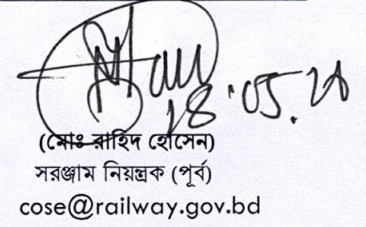 18.05.26
(মোঃ রাহিদ হোসেন)
সরঞ্জাম নিয়ন্ত্রক (পূর্ব)
cose@railway.gov.bd